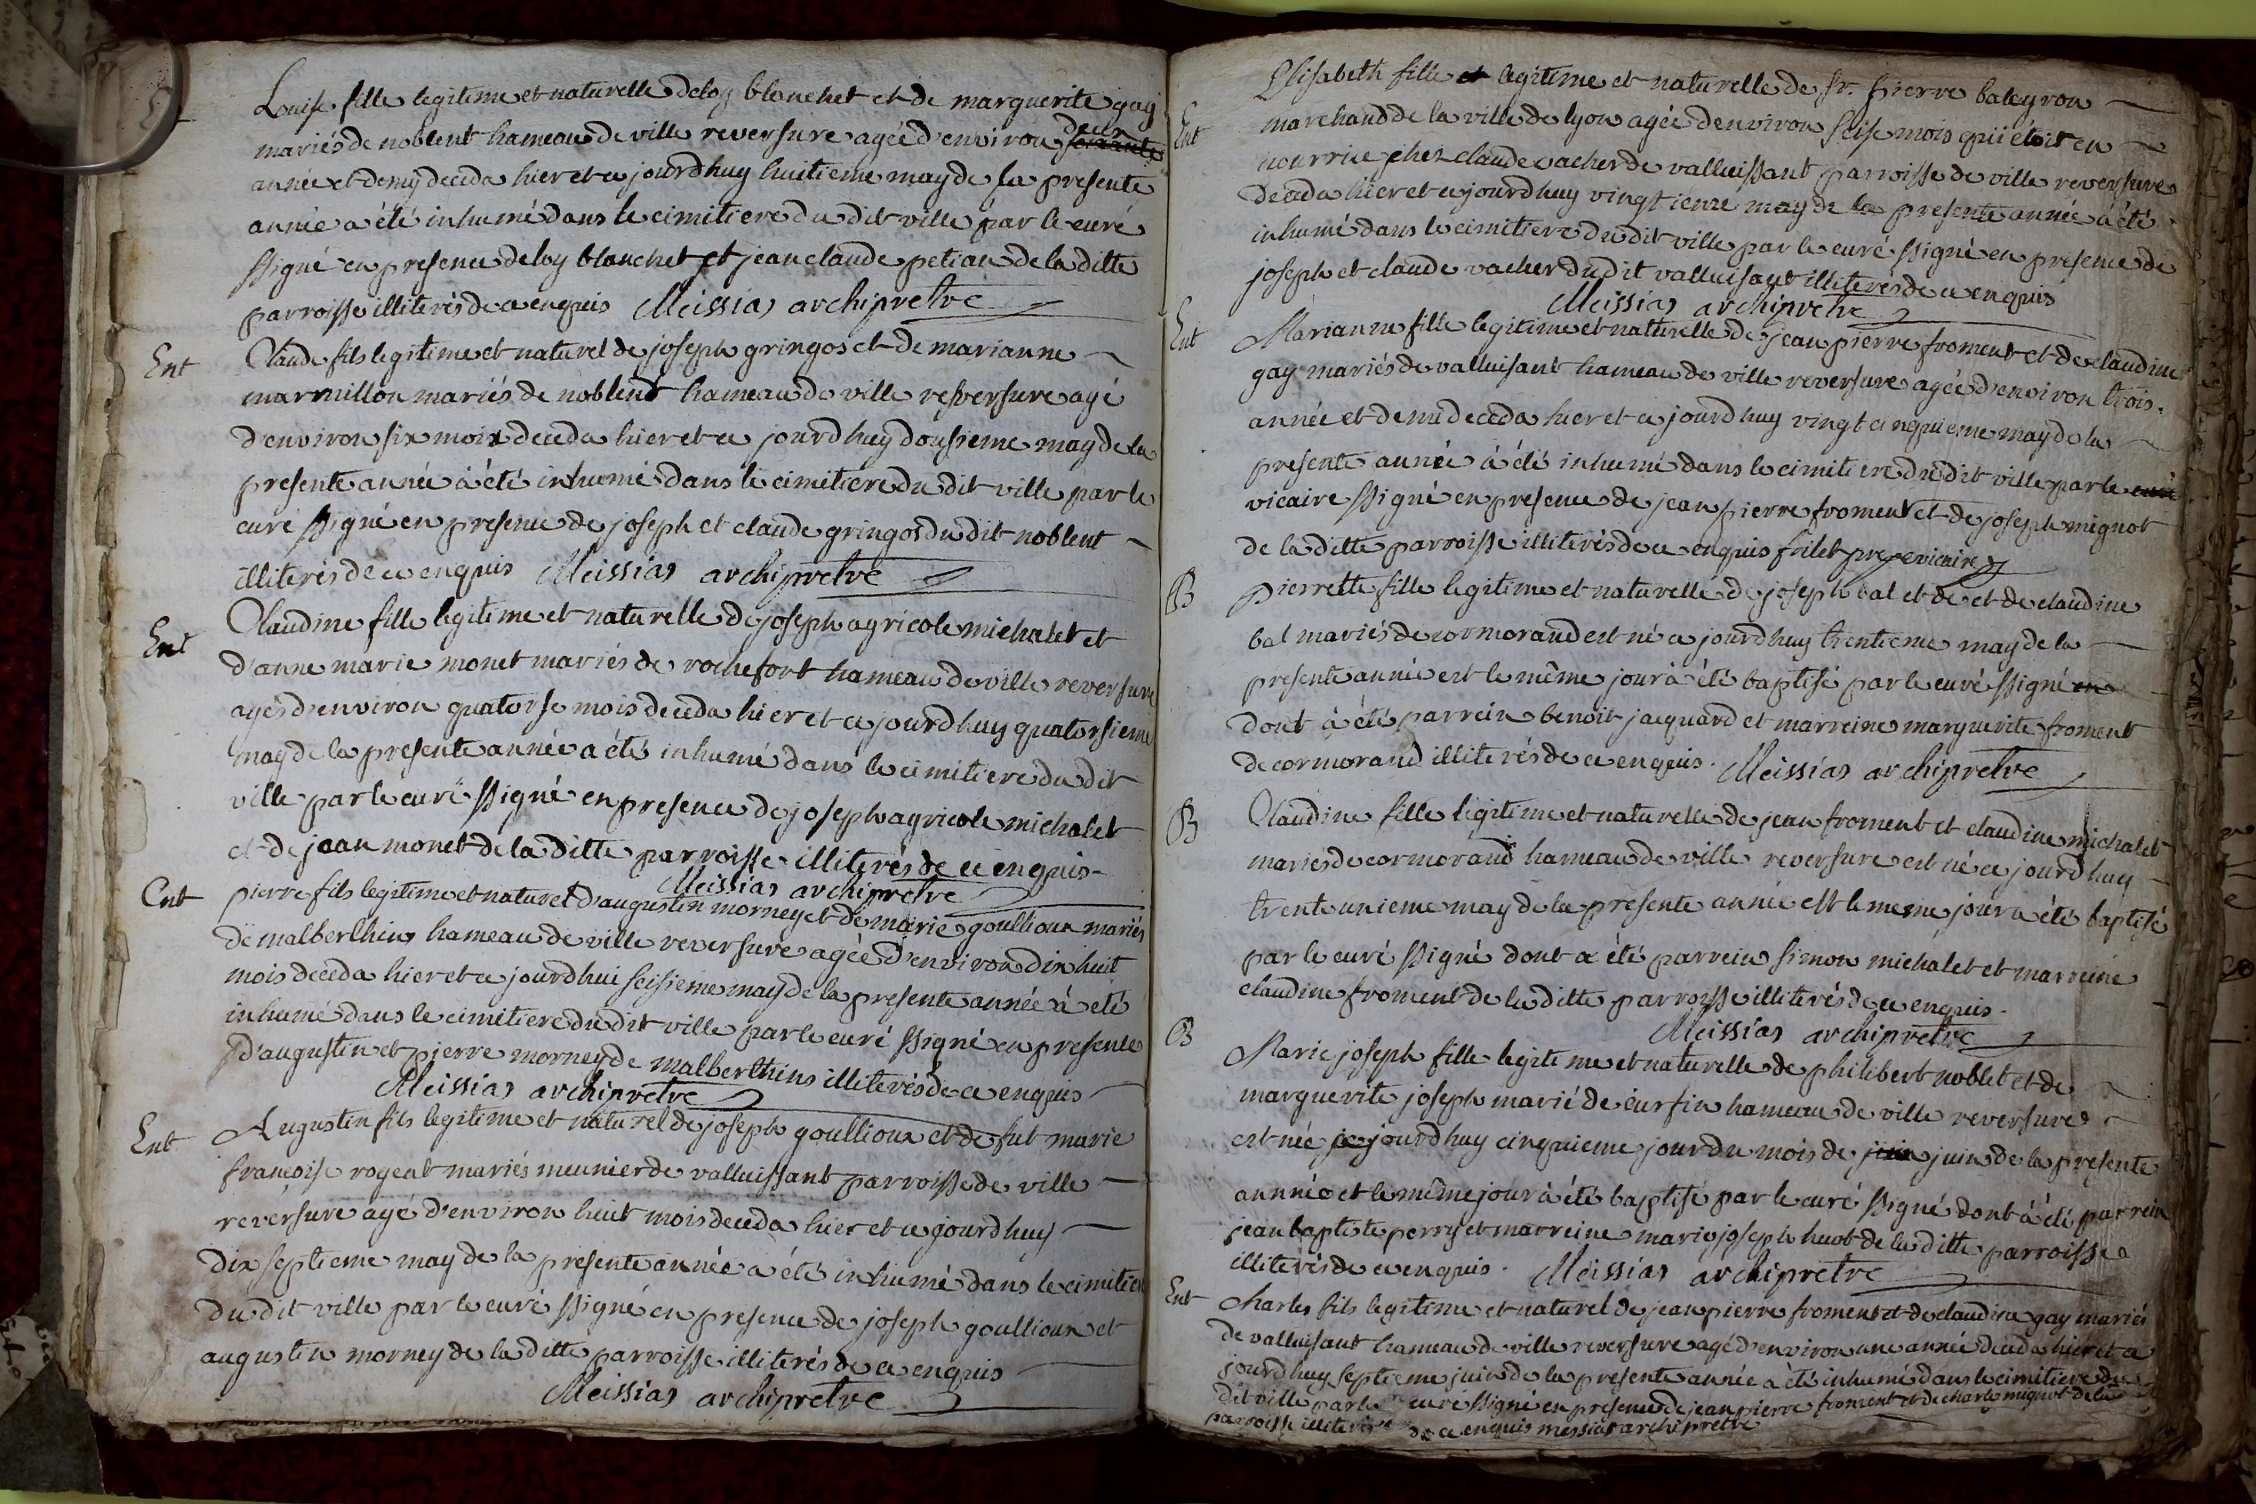 Louise fille legitime et naturelle de loy blonchet et de marguerite gay
mariés de noblent hameau de ville reversure agée d'environ deux
année et demy deceda hier et ce jourdhuy huitieme may de la presente
année a été inhumé dans le cimitiere du dit ville par le curé
ssigné en presence de loy blanchet et jean claude petian de la ditte
parroisse illiterés de ce enquis Meissias archiprêtre
Ent
Claude fils legitime et naturel de joseph gringos et de marianne
marmillon mariés de noblent hameau de ville reversure agé
d'environ six mois deceda hier et ce jourdhuy dousieme may de la
presente année à été inhumé dans le cimitiere du dit ville par le
curé ssigné en presence de joseph et claude gringos du dit noblent
illiterés de ce enquis Meissias archiprêtre
Ent
Claudine fille legitime et naturelle de joseph agricole michalet et
d'anne marie monet mariés de rochefort hameau de ville reversure
agés d'environ quatorse mois deceda hier et ce jourdhuy quatorsieme
may de la presente année a été inhumé dans le cimitiere du dit
ville par le curé ssigné en presence de joseph agricole michalet
et de jean monet de la ditte parroisse illiterés de ce enquis
Meissias archiprêtre
Ent
pierre fils legitime et naturel d'augustin morney et de marie goullioux mariés
de malberthins hameau de ville reversure agée d'environ dix huit
mois deceda hier et ce jourdhui seisieme may de la presente année à été
inhumé dans le cimitiere du dit ville par le curé ssigné en presence
d'augustin et pierre morney de malberthins illiterés de ce enquis
Meissias archiprêtre
Ent
Augustin fils legitime et naturel de joseph goullioux et de fut marie
francoise rogeat mariés meunier de valluissant parroisse de ville
reversure agé d'environ huit mois deceda hier et ce jourdhuy
dix septieme may de la presente année a été inhumé dans le cimitiere
du dit ville par le curé ssigné en presence de joseph goullioux et
augustin morney de la ditte parroisse illiterés de ce enquis
Meissias archiprêtre
Ent
Elisabeth fille et legitime et naturelle de sr. pierre baleyron
marchand de la ville de lyon agée d'environ seise mois qui étoit en
nourrice chez claude vacher de valluissant parroisse de ville reversure
deceda hier et ce jourdhuy vingtieme may de la presente année à été
inhumé dans le cimitiere du dit ville par le curé ssigné en presence de
joseph et claude vacher du dit valluisant illiterés de ce enquis
Meissias archiprêtre
Ent
Marianne fille legitime et naturelle de jean pierre froment et de claudine
gay mariés de valluisant hameau de ville reversure agée d'environ trois
année et demi deceda hier et ce jourdhuy vingt cinquieme may de la
presente année à été inhumé dans le cimitiere du dit ville par le curé
vicaire ssigné en presence de jean pierre froment et de joseph mignot
de la ditte parroisse illiterés de ce enquis frilet previcaire
B
pierrette fille legitime et naturelle de joseph bal et de et de claudine
bal mariés de cormorand est né ce jourdhuy trentieme may de la
presente année est le même jour à été baptisé par le curé ssigné en
dont à été parrein benoit jacquard et marreine marguerite froment
de cormorand illiterés de ce enquis. Meissias archiprêtre
B
Claudine fille legitime et naturelle de jean froment et claudine michalet
mariés de cormorand hameau de ville reversure est né ce jourdhuy
trente unieme may de la presente année est le meme jour a été baptisé
par le curé ssigné dont a été parrein simon michalet et marreine
claudine froment de la ditte parroisse illiterés de ce enquis.
Meissias archiprêtre
B
Marie joseph fille legitime et naturelle de philibert noblet et de
marguerite joseph marié de curfin hameau de ville reversure
est née ce jourdhuy cinquieme jour du mois de juin juin de la presente
année et le même jour à été baptisé par le curé ssigné dont à été parrein
jean baptiste perry et marreine marie joseph huot de la ditte parroisse
illiterés de ce enquis. Meissias archiprêtre
Ent
Charles fils legitime et naturel de jean pierre froment et de claudine gay mariés
de valluisant hameau de ville reversure agé d'environ une année deceda hier et ce
jourdhuy septieme juin de la presente année a été inhumé dans le cimitiere du
dit ville par le curé ssigné en presence de jean pierre froment et de charle mignot de la
parroisse illiterés de ce enquis messias archiprêtre